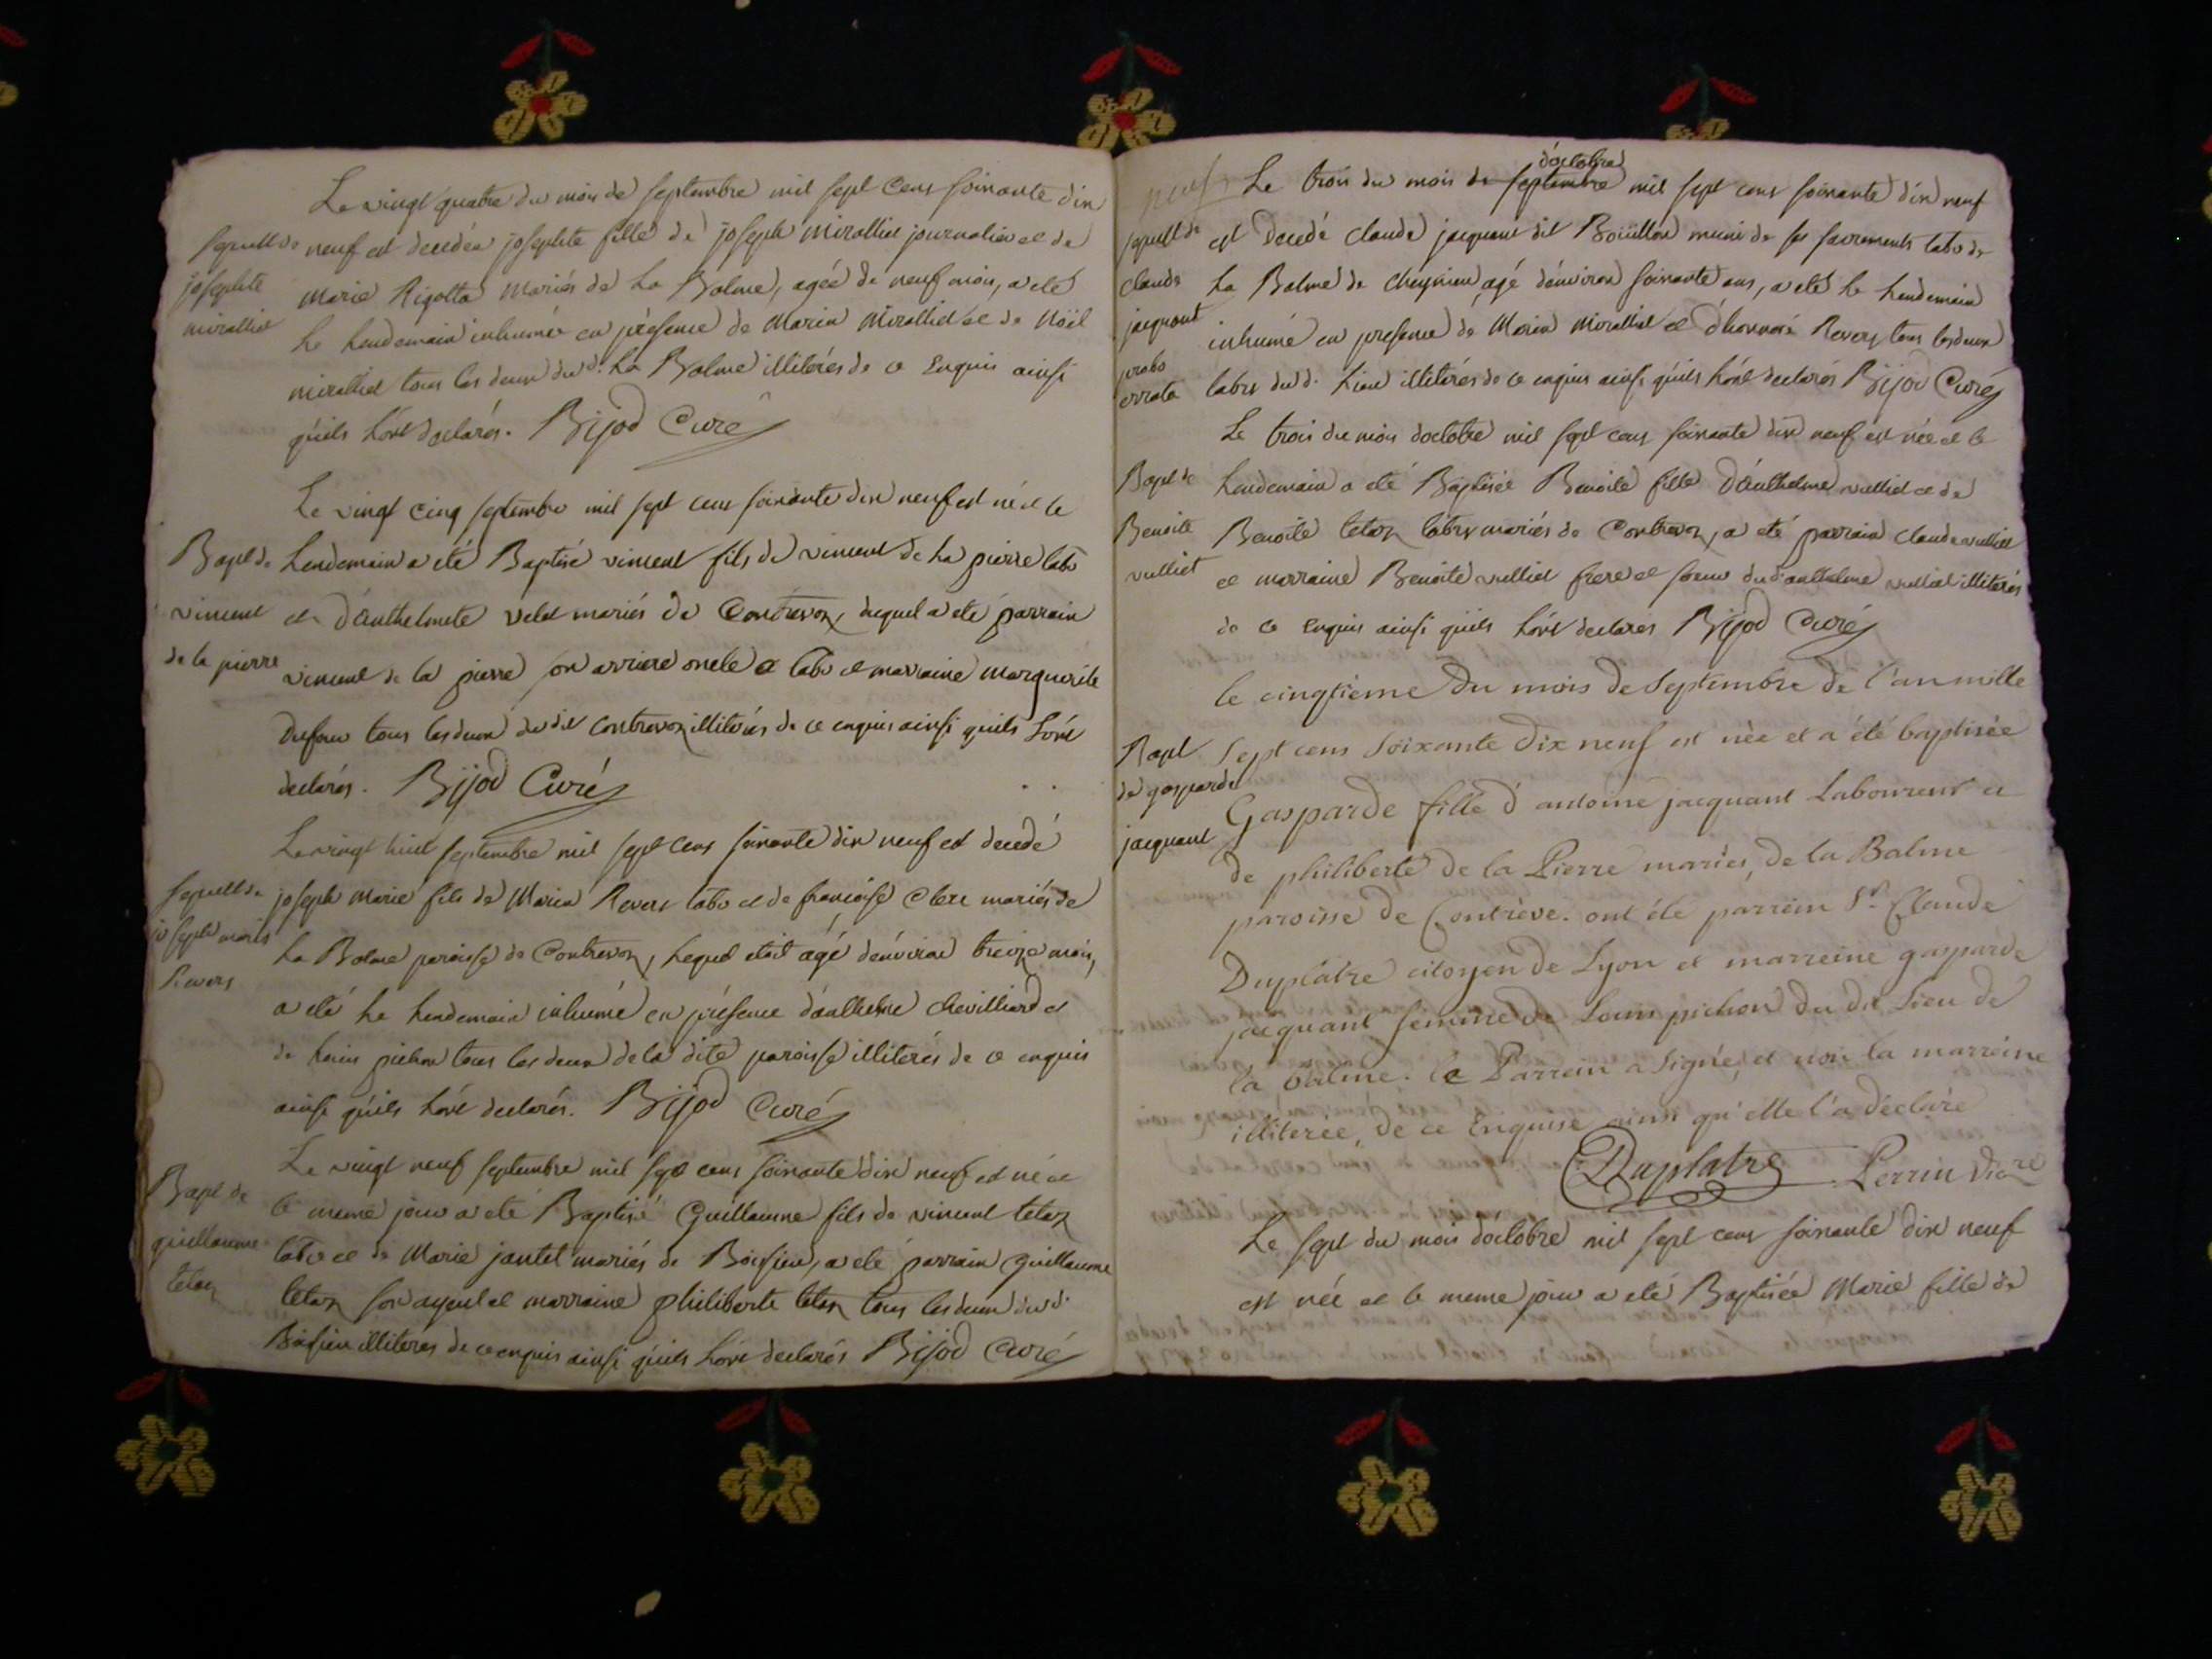 Le vingt quatre du mois de septembre mil sept cens soixante dix
sepult de
josephte
miralliet
neuf est decedée josephte fille de joseph Miralliet journalier et de
Marie Rigollta mariés de La Balme, agée de neuf mois, a eté
le Lendemain inhumée en présence de Marin Miralliet et de Noël
miralliet tous les deux du d. La Balme illiterés de ce enquis ainsi
qu'ils l'ont declarés. Bijod Curé
Le vingt cinq septembre mil sept cens soixante dix neuf est né et le
Bapt de
vincent
de la pierre
Lendemain a eté Baptisé vincent fils de vincent de La pierre labr
et d'Anthelmete velet mariés de Contrevoz, duquel a eté parrain
vincent de la pierre son arriere oncle labr et marraine marguerite
Dufour tous les deux du dit Contrevoz illiterés de ce enquis ainsi qu'ils L'ont
declarés. Bijod Curé
Le vingt huit septembre mil sept cens soixante dix neuf est decedé
sepult de
joseph marie
Revers
joseph Marie fils de Marin Revers labr et de francoise Clerc mariés de
La Balme paroisse de Contrevoz, Lequel etoit agé d'enviran treize mois,
a eté le Lendemain inhumé en présence d'anthelme chevilliard et
de Louis pichon tous les deux de la dite paroisse illiterés de ce enquis
ainsi qu'ils L'ont declarés. Bijod Curé
Le vingt neuf septembre mil sept cens soixante dix neuf est né et
Bapt de
guillaume
tetaz
le meme jour a eté Baptisé Guillaume fils de vincent tetaz
labr et de Marie jantet mariés de Boissieu, a eté parrain Guillaume
tetaz son ayeul et marraine philiberte tetaz tous les deux du d.
Boissieu illiteres de ce enquis ainsi qu'ils L'ont declarés Bijod Curé
neuf
d'octobre
Le trois du mois de septembre mil sept cens soixante dix neuf
sepult de
claude
jacquant
probo
errata
est Decedé claude jacquant dit Boüillon muni de ses sacrements labr de
La Balme de cheynieu, agé d'environ soixante ans, a eté le Lendemain
inhumé en presence de Marin Miralliet et d'honnoré Revers, tous les deux
labrs du d. Lieu illiterés de ce enquis ainsi qu'ils L'ont declarés Bijod Curé
Le trois du mois d'octobre mil sept cens soixante dix neuf est née et le
Bapt de
Benoite
vulliet
Lendemain a eté Baptisée Benoite fille D'Anthelme vulliet et de
Benoite tetaz labrs mariés de Contrevoz, a eté parrain claude vulliet
et marraine Benoite vulliet frere et soeur du d. anthelme vulliet illiterés
de ce enquis ainsi qu'ils L'ont declarés Bijod Curé
le cinqtième du mois de Septembre de l'an mille
Bapt
de gasparde
jacquant
Sept cens Soixante Dix neuf est née et a été baptisée
Gasparde fille d'antoine jacquant Laboureur et
de philiberte de la Pierre mariés, de la Balme
paroisse de Contrève. ont éte parrein Sr. Claude
Duplâtre citoyen de Lyon et marreine gasparde
jacquant femme de Louis pichon du dit Lieu de
la Balme. le Parrein a Signé, et non la marreine
illiterée, de ce Enquise ainsi qu'elle l'a déclaré
Duplatre Perrin Vicre
Le sept du mois d'octobre mil sept cens soixante dix neuf
est née et le meme jour a eté Baptisée Marie fille de